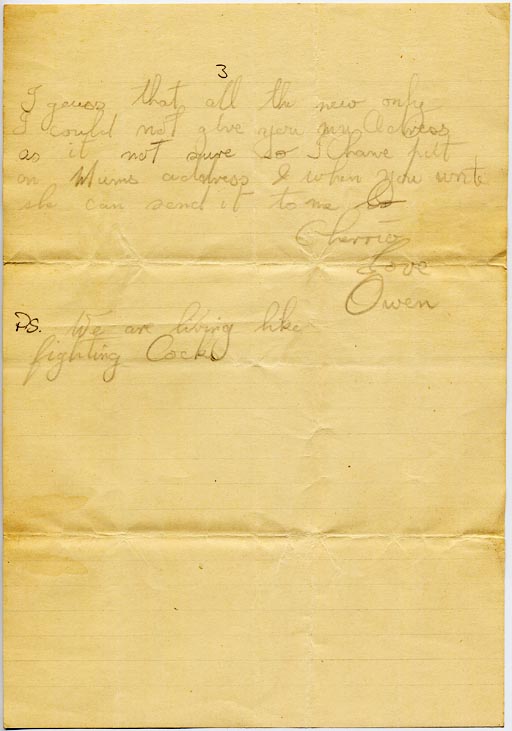 3
I guess that all the new only
I could not give you my Adress
as it not sure so I have put
on Mums address & when you write
she can send it to me
Cherrio
Love
Owen
PS. We are living like
fighting Cocks